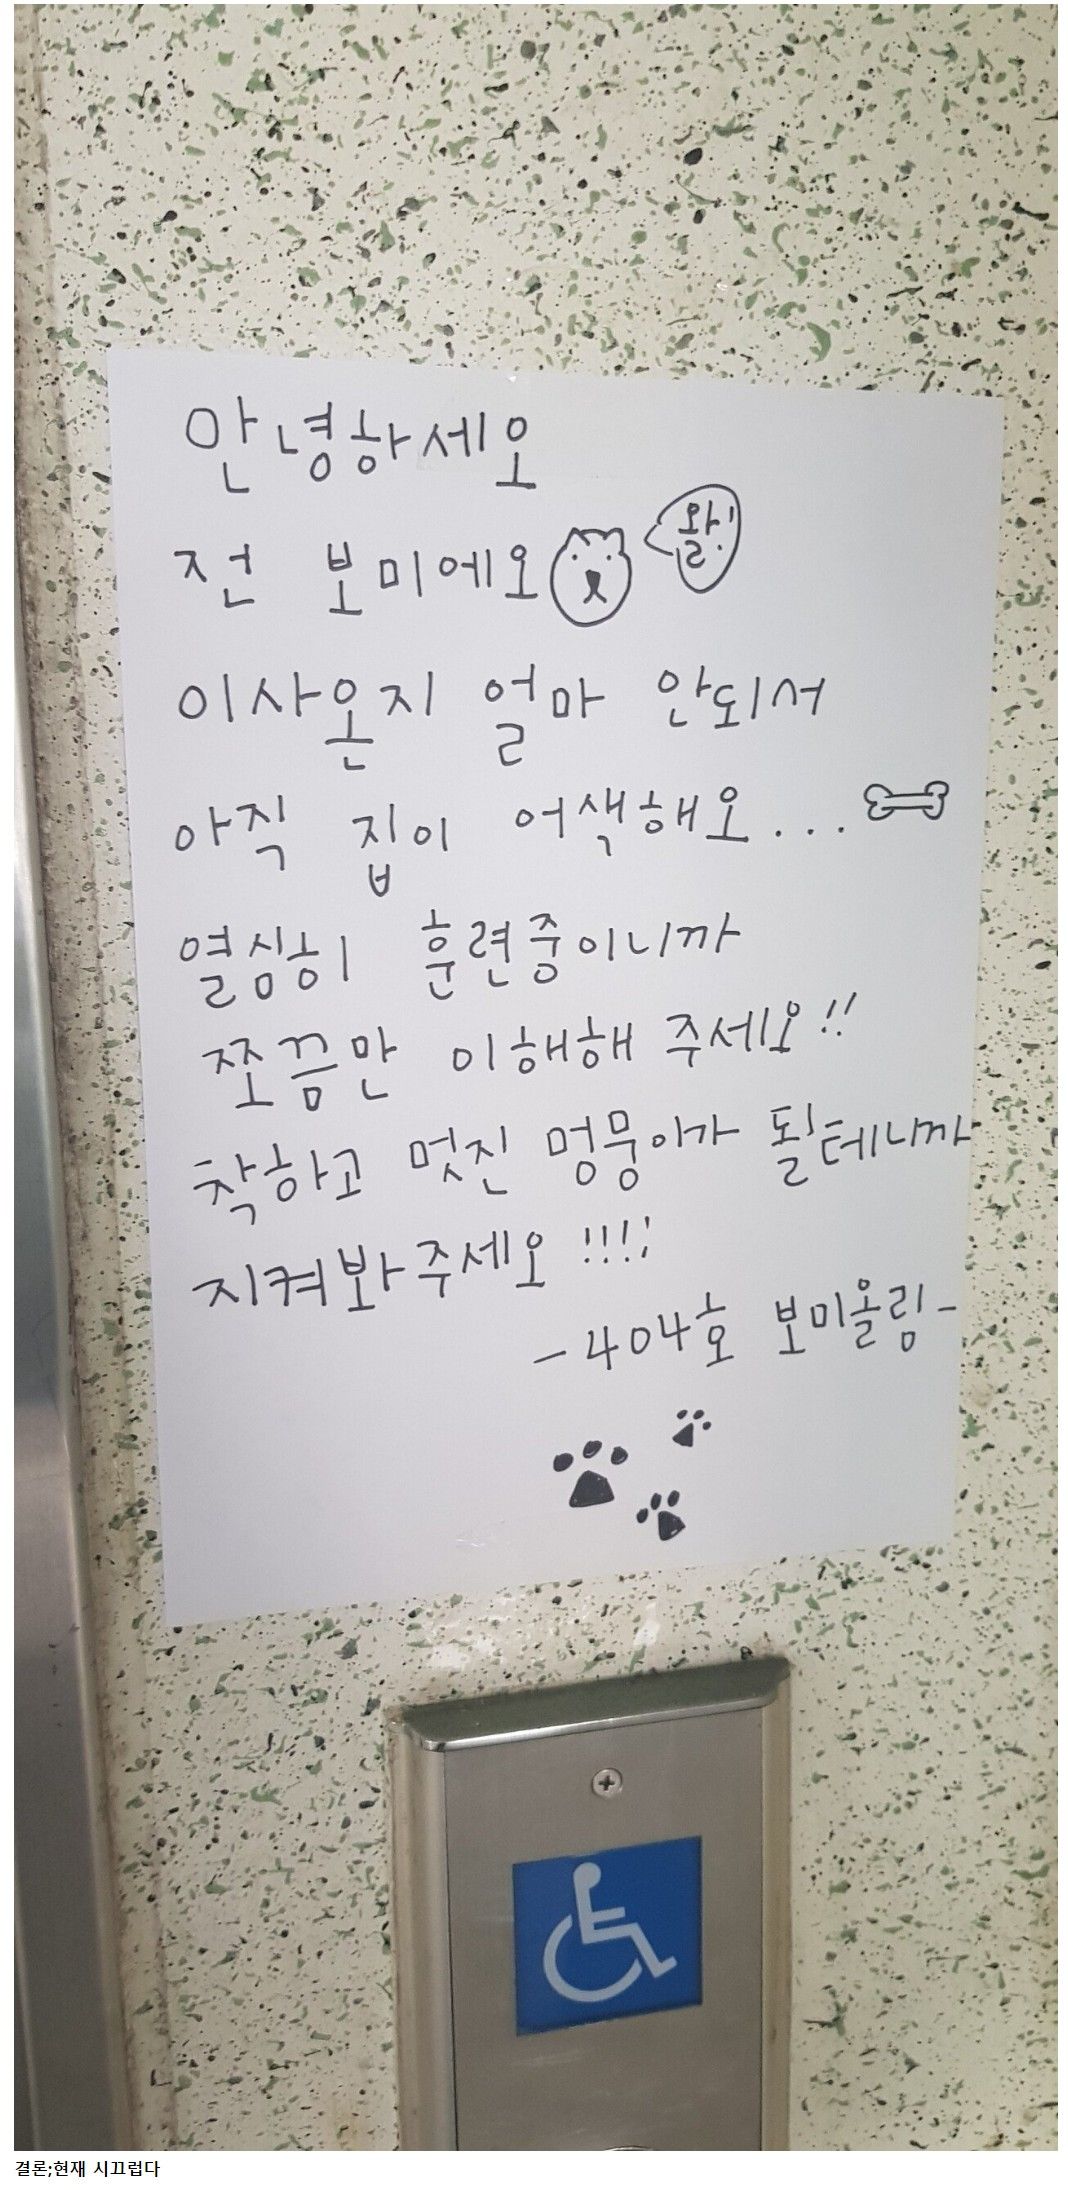 안녕하세오
전 보미에오
왈!
이사온지 얼마 안되서
아직 집이 어색해오...
열심히 훈련중이니까
쪼끔만 이해해 주세오!!
착하고 멋진 멍뭉이가 될테니까
지켜봐주세오!!!!
-404호 보미올림-
결론;현재 시끄럽다